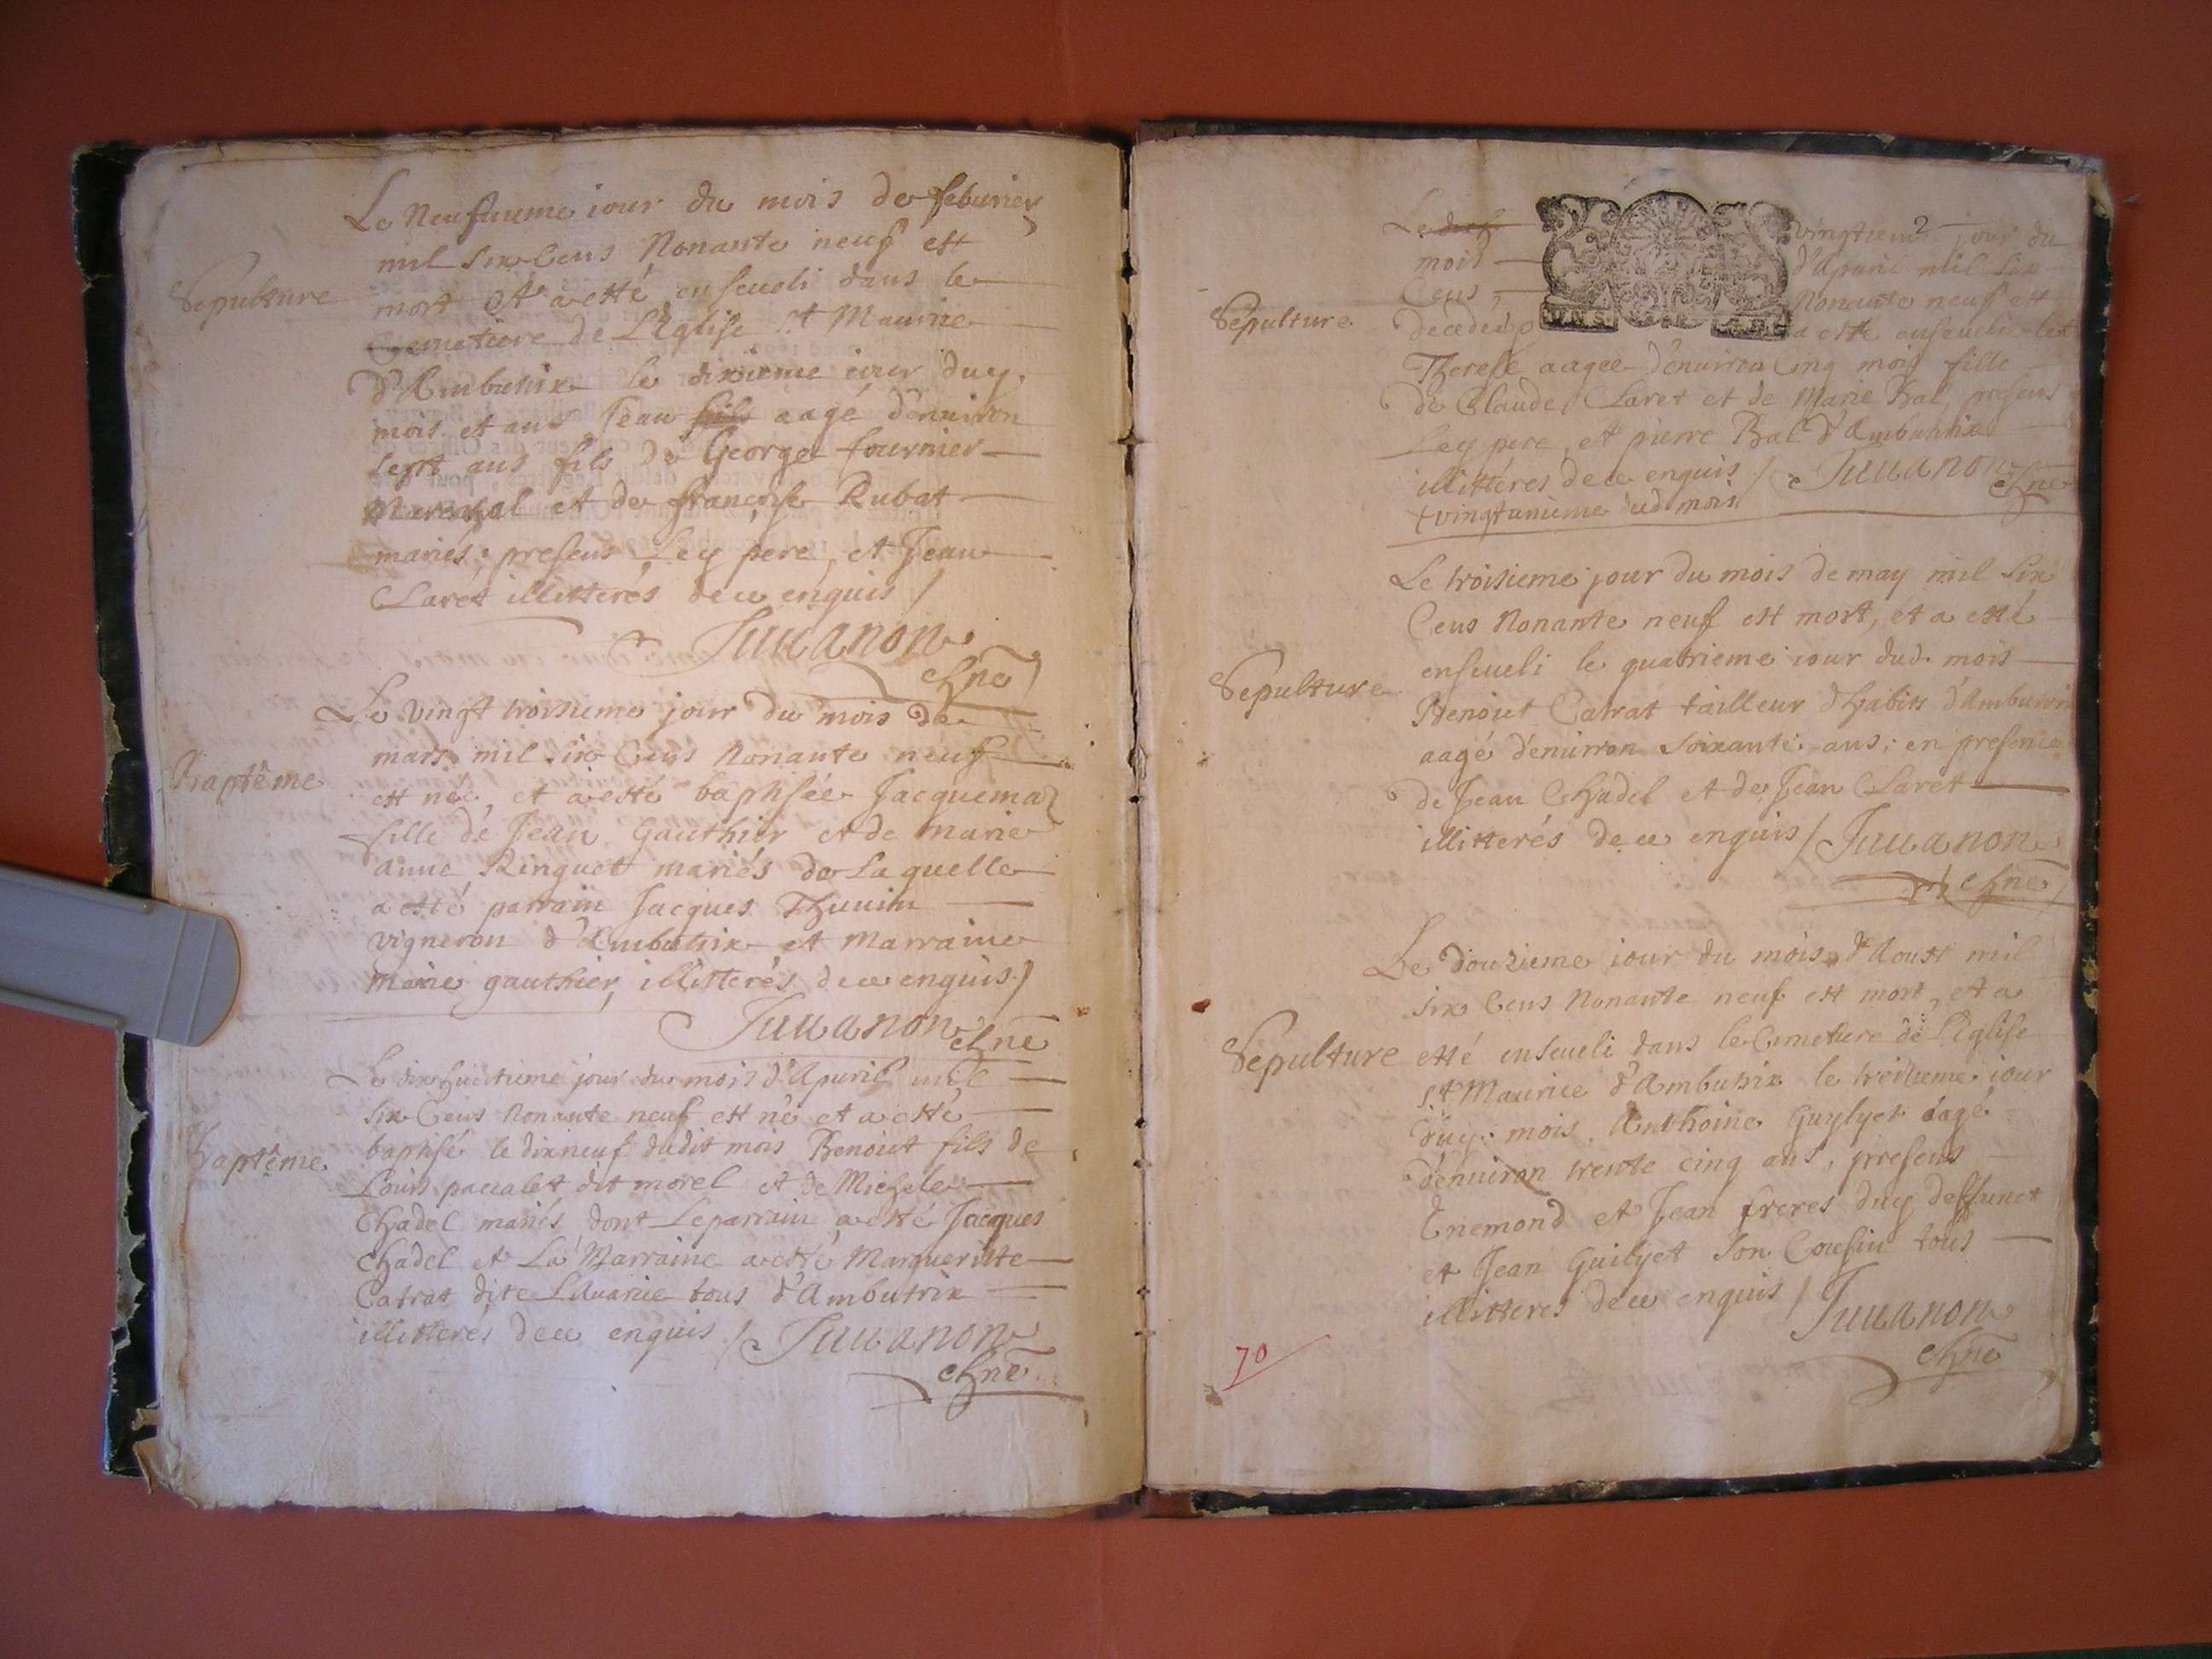 Le Neufuieme iour du mois de feburier
mil six Cens Nonante neuf est
Sepulture
mort et a esté enseueli dans le
Cemetiere de L'Eglise St Maurice
d'Ambutrix le dixieme iour duy.
mois et an Jean fils aagé d'enuiron
sept ans fils de George fournier
Mareschal et de francoise Rubat
mariés; presens Ley pere, et Jean
Claret illitterés de ce enquis /
Juuanon
chne
Le vingt troisieme jour du mois de
mars mil six Cens Nonante neuf
Baptême
est née, et a esté baptisée Jacquema
fille de Jean Gauthier et de Marie
anne Ringuet mariés de Laquelle
a esté parrain Jacques Thuuin
vigneron d'Ambutrix et Marraine
Marie gauthier, illitterés de ce enquis /
Juuanon chne
Le dix huictieme jour du mois d'Apuril mil
six Cens Nonante neuf est né et a esté
Baptême
baptisé le dixneuf dudit mois Benoict fils de
Louis paccalet dit morel et de Michele
Chadel mariés dont Le parrain a esté Jacques
chadel et La Marraine a esté Margueritte
Catrat dite L'Auarie tous d'Ambutrix
illitterés de ce enquis / Juuanon
chne
2
Le vingtieme jour du
mois d'Apuril mil six
Cens, Nonante neuf est
Sepulture
decedée, a esté enseuelie le+
Therese aagee d'enuiron Cinq mois fille
de Claude Claret et de Marie Bal, presens
Ley pere, et pierre Bal d'Ambutrix
illitterés de ce enquis / Juuanon
chne
+vingtunieme dud. mois
Le troisieme jour du mois de may mil six
Cens Nonante neuf est mort, et a esté
enseueli le quatrieme iour dud. mois
Sepulture
Benoict Catrat tailleur d'habits d'Ambutrix
aagé d'enuiron soixante ans; en presence
de Jean Chadel et de Jean Claret
illitterés de ce enquis / Juuanon
chne
Le douzieme iour du mois d'Aoust mil
six Cens Nonante neuf est mort, et a
Sepulture
esté enseueli dans le Cimetiere de L'Eglise
St Maurice d'Ambutrix le treizieme iour
duy. mois. Anthoine Guylyet aagé
d'enuiron trente cinq ans, presens
Enemond et Jean freres duy deffunct
et Jean Guilyet son Cousin tous
illitteres de ce enquis / Juuanon
chne
70